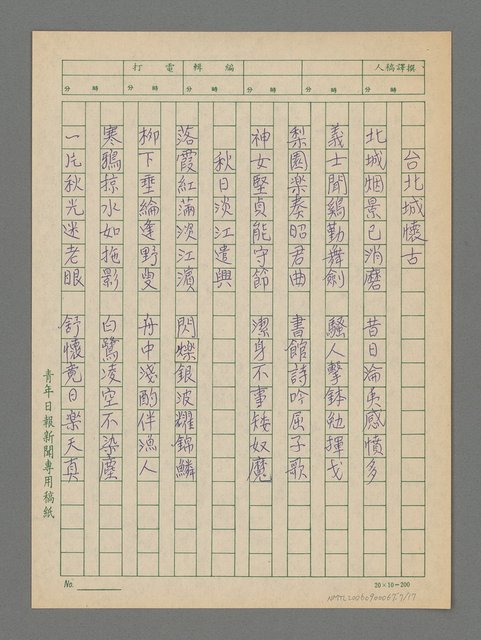 撰譯稿人
編輯
電打
時 分 時 分 時 分 時 分
台北城懷古
北城烟景已消磨 昔日淪禹感憤多
義士聞鷄勤舞劍 騷人擊鉢勉揮戈
梨園樂奏昭君曲 書館詩吟屈子歌
神女堅貞能守節 潔身不事矮奴魔
秋日淡江遣興
落霞紅滿淡江濱 閃爍銀波耀錦鱗
柳下垂綸逢野叟 舟中淺酌伴漁人
寒鴉掠水如拖影 白鷺凌空不染塵
一片秋光迷老眼 舒懷竟日樂天真
青年日報新聞專用稿紙
No.
20×10=200